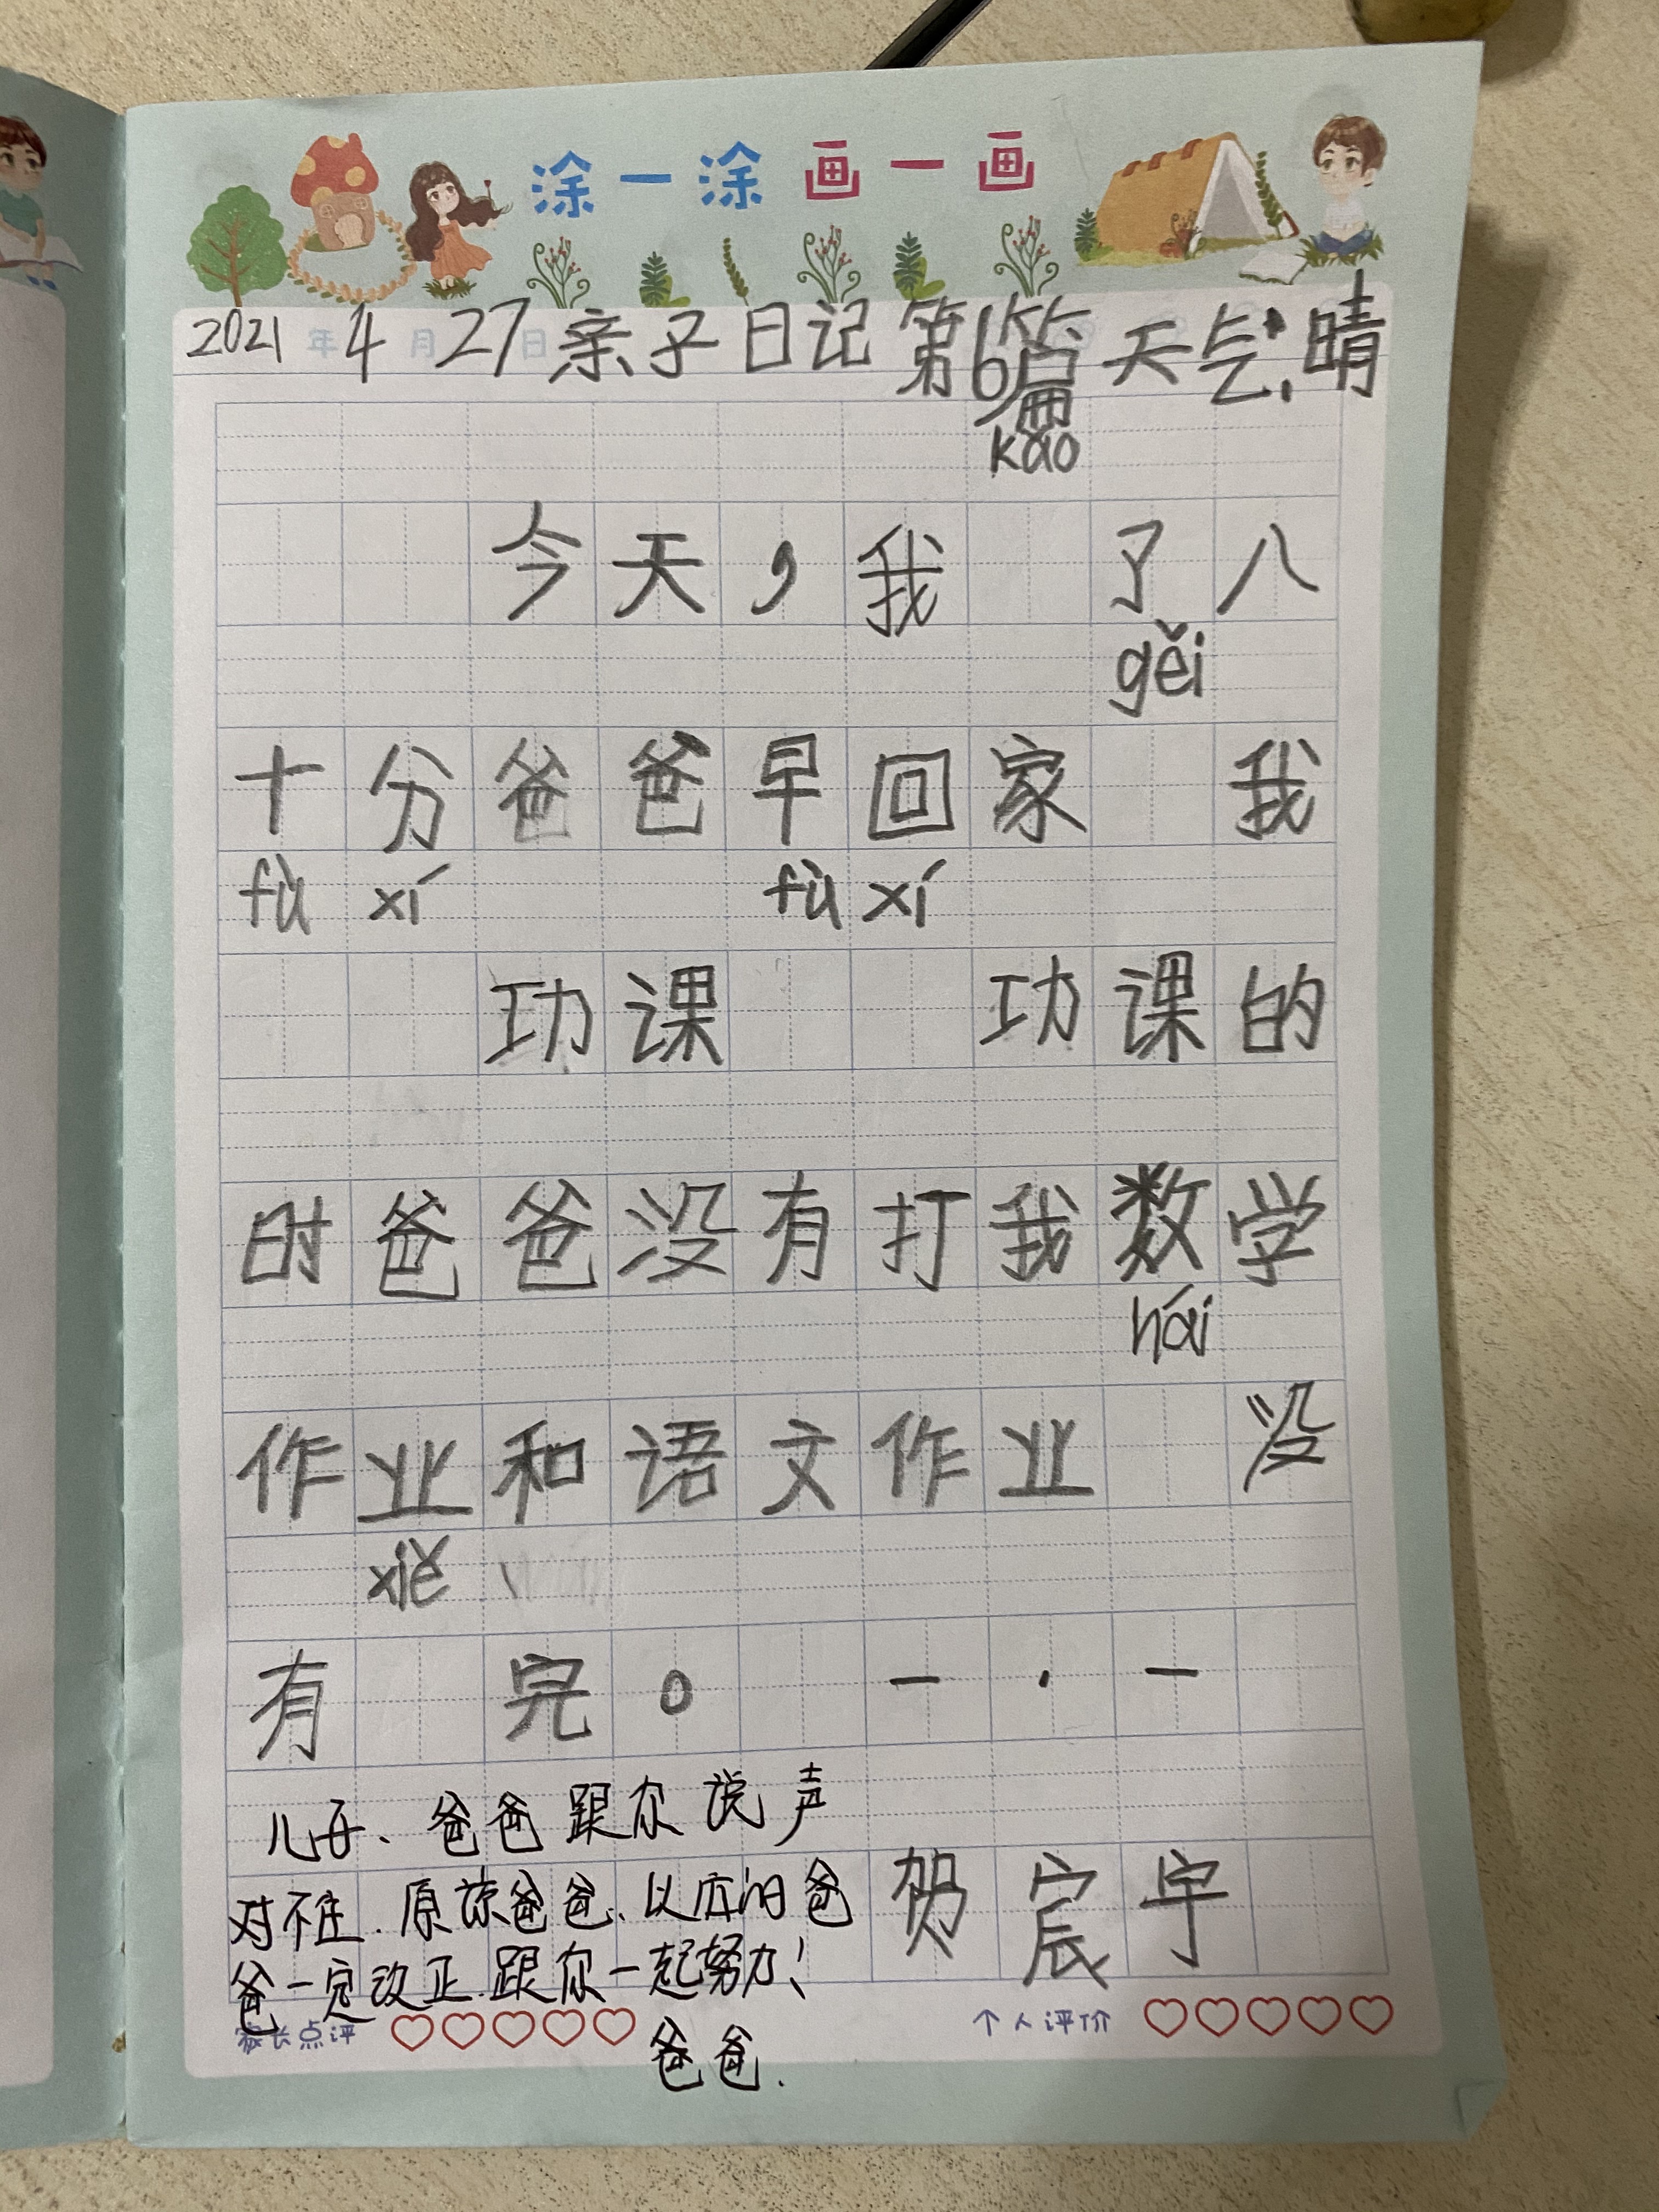 涂一涂画一画
2021年4月27日亲子日记第6篇天气:晴
kǎo
今天,我 了八
gěi
十分爸爸早回家 我
fù xí fù xí
功课 功课的
时爸爸没有打我数学
hái
作业和语文作业 没
xiě
有 完。 一·一
儿子、爸爸跟你说声
对不住.原谅爸爸、以后的爸
爸一定改正.跟你一起努力!
爸爸.
贺宸宇
家长点评
个人评价